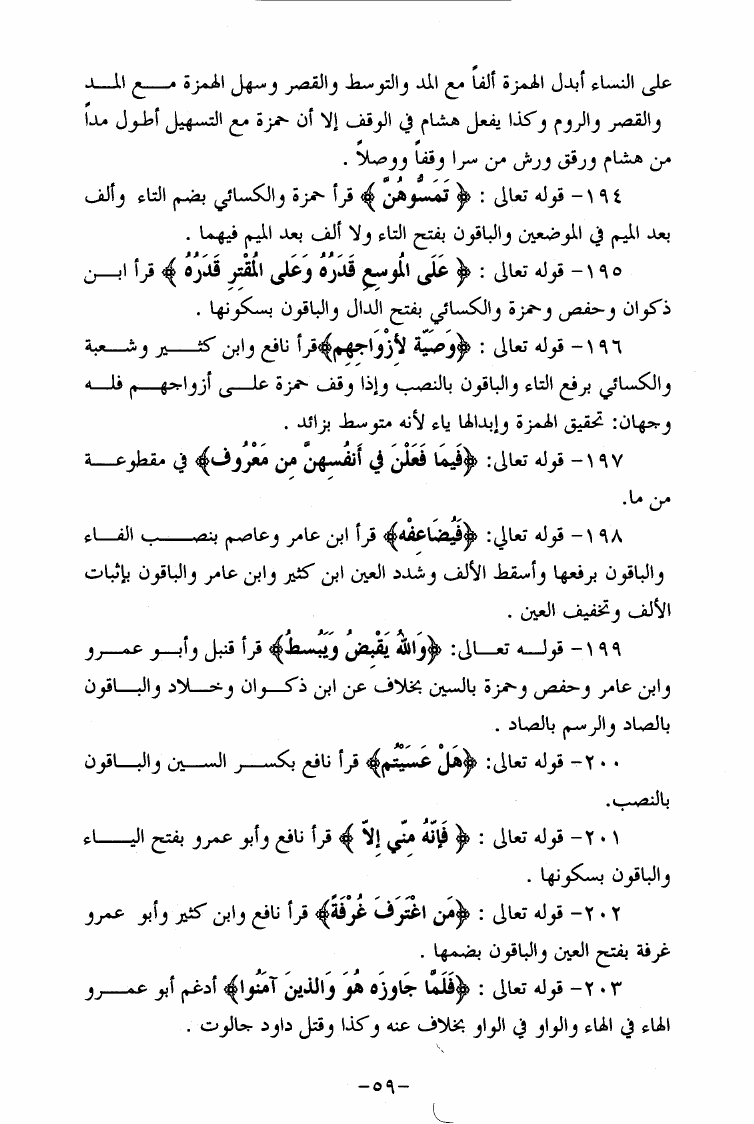 على النساء أبدل الهمزة ألفاً مع المد والتوسط والقصر وسهل الهمزة مع المد
والقصر والروم وكذا يفعل هشام في الوقف إلا أن حمزة مع التسهيل أطول مداً
من هشام ورقق ورش من سرا وقفاً ووصلاً .
١٩٤- قوله تعالى : ﴿ تَمَسُّوهُنَّ ﴾ قرأ حمزة والكسائي بضم التاء وألف
بعد الميم في الموضعين والباقون بفتح التاء ولا ألف بعد الميم فيهما .
١٩٥- قوله تعالى : ﴿ عَلَى الْمُوسِعِ قَدَرُهُ وَعَلَى الْمُقْتِرِ قَدَرُهُ ﴾ قرأ ابن
ذكوان وحفص وحمزة والكسائي بفتح الدال والباقون بسكونها .
١٩٦- قوله تعالى : ﴿وَصِيَّة لأزْوَاجِهِم﴾قرأ نافع وابن كثير وشعبة
والكسائي برفع التاء والباقون بالنصب وإذا وقف حمزة على أزواجهم فله
وجهان: تحقيق الهمزة وإبدالها ياء لأنه متوسط بزائد .
١٩٧- قوله تعالى: ﴿فِيمَا فَعَلْنَ فِي أَنفُسِهِنَّ مِن مَعْرُوف﴾ في مقطوعة
من ما.
١٩٨- قوله تعالي: ﴿فَيُضَاعِفْه﴾ قرأ ابن عامر وعاصم بنصب الفاء
والباقون برفعها وأسقط الألف وشدد العين ابن كثير وابن عامر والباقون بإثبات
الألف وتخفيف العين .
١٩٩- قوله تعالى: ﴿وَاللهُ يَقْبِضُ وَيَبْسطُ﴾ قرأ قنبل وأبو عمرو
وابن عامر وحفص وحمزة بالسين بخلاف عن ابن ذكوان وخلاد والباقون
بالصاد والرسم بالصاد .
٢٠٠- قوله تعالى: ﴿هَلْ عَسَيْتُم﴾ قرأ نافع بكسر السين والباقون
بالنصب.
٢٠١- قوله تعالى : ﴿ فَإِنَّهُ مِنِّي إِلاّ ﴾ قرأ نافع وأبو عمرو بفتح الياء
والباقون بسكونها .
٢٠٢- قوله تعالى : ﴿مَن اغْتَرَفَ غُرْفَةً﴾ قرأ نافع وابن كثير وأبو عمرو
غرفة بفتح العين والباقون بضمها .
٢٠٣- قوله تعالى : ﴿فَلَمَّا جَاوزَه هُوَ وَالذينَ آمَنُوا﴾ أدغم أبو عمرو
الهاء في الهاء والواو في الواو بخلاف عنه وكذا وقتل داود جالوت .
-٥٩-